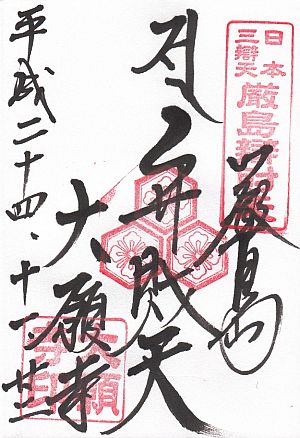 日本
三辯天
厳島辯財天
嚴島
弁財天
大願寺
大願
寺印
平成二十四、十一、廿三